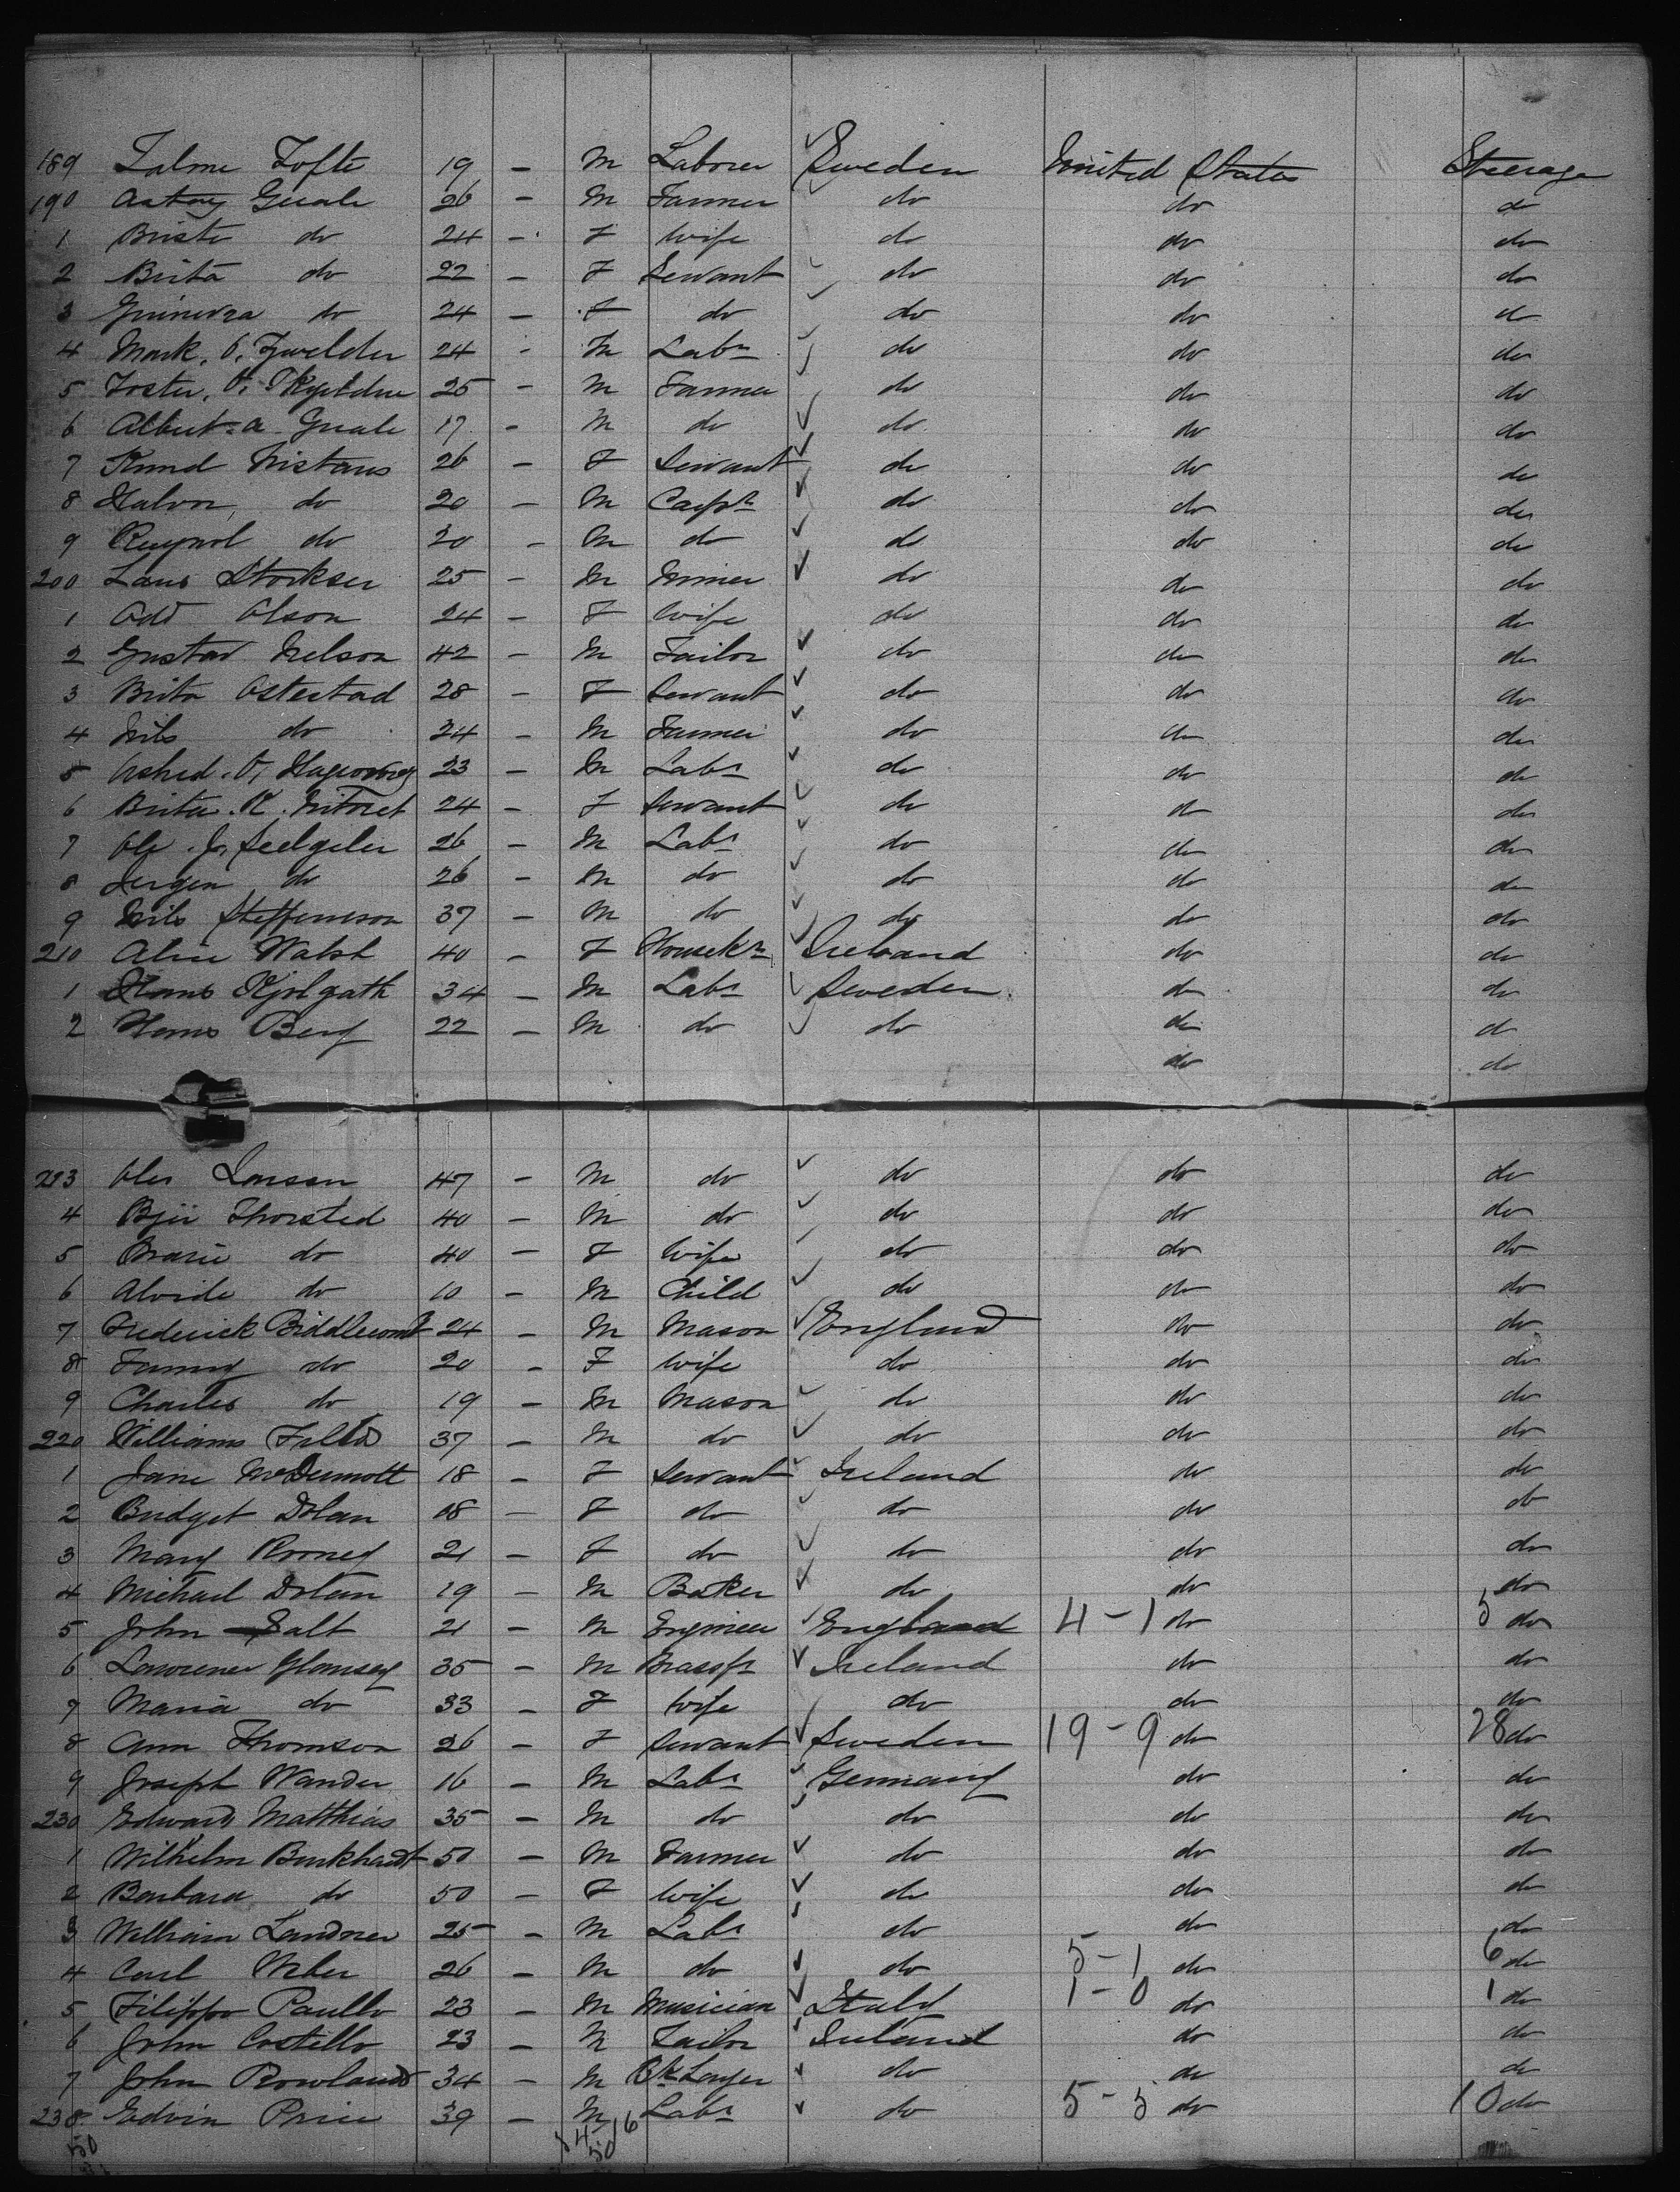 189 Talme Tofte 19 - M Laborer Sweden United States Steerage
190 Guale 26 - M Farmer do do do
1 Briste do 24 - F Wife do do do
2 Brita do 22 - F Servant do do do
3 do 24 - F do do do do
4 Mark. O. 24 - M Labr do do do
5 25 - M Farmer do do do
6 Albert. a. Guale 17 - M do do do do
7 Knud Nistans 26 - F Servant do do do
8 Halvor, do 20 - M Carpr do do do
9 do 20 - M do do do do
200 Lans Storkser 25 - M Miner do do do
1 Odd Olson 24 - F Wife do do do
2 Gustav Nelson 42 - M Tailor do do do
3 Brita Ostestad 28 - F Servant do do do
4 Nils do 24 - M Farmer do do do
5 23 - M Labr do do do
6 Brita. K. 24 - F Servant do do do
7 Ole. J. 26 - M Labr do do do
8 Jergen do 26 - M do do do do
9 Nils Steffenson 37 - M do do do do
210 Alice Walsh 40 - F Housekr Ireland do do
1 Hans 34 - M Labr Sweden do do
2 Hans Berg 22 - M do do do do
do do
213 Ole Larsen 47 - M do do do do
4 Thorsted 40 - M do do do do
5 Marie do 40 - F Wife do do do
6 do 10 - M Child do do do
7 Frederick Biddlecomb 24 - M Mason England do do
8 Fanny do 20 - F Wife do do do
9 Charles do 19 - M Mason do do do
220 Williams 37 - M do do do do
1 Jane McDermott 18 - F Servant Ireland do do
2 Bridget Dolan 18 - F do do do do
3 Mary Rooney 21 - F do do do do
4 Michael Dolan 19 - M Baker do do do
5 John Salt 21 - M Engineer England 4-1 do 5 do
6 Lawrence 35 - M Ireland do do
7 Maria do 33 - F Wife do do do
8 Ann Thomson 26 - F Servant Sweden 19-9 do 28 do
9 Joseph Wander 16 - M Labr Germany do do
230 Edward Matthias 35 - M do do do do
1 Wilhelm Burkhardt 50 - M Farmer do do do
2 Barbara do 50 - F Wife do do do
3 William Landner 25 - M Labr do do do
4 Carl Weber 26 - M do do 5-1 do 6 do
5 Filippo Paullo 23 - M Musician Italy 1-0 do 1 do
6 John Costello 23 - M Tailor Ireland do do
7 John Rowland 34 - M do do do
238 Edwin Price 39 - M Labr do 5-5 do 10 do
50